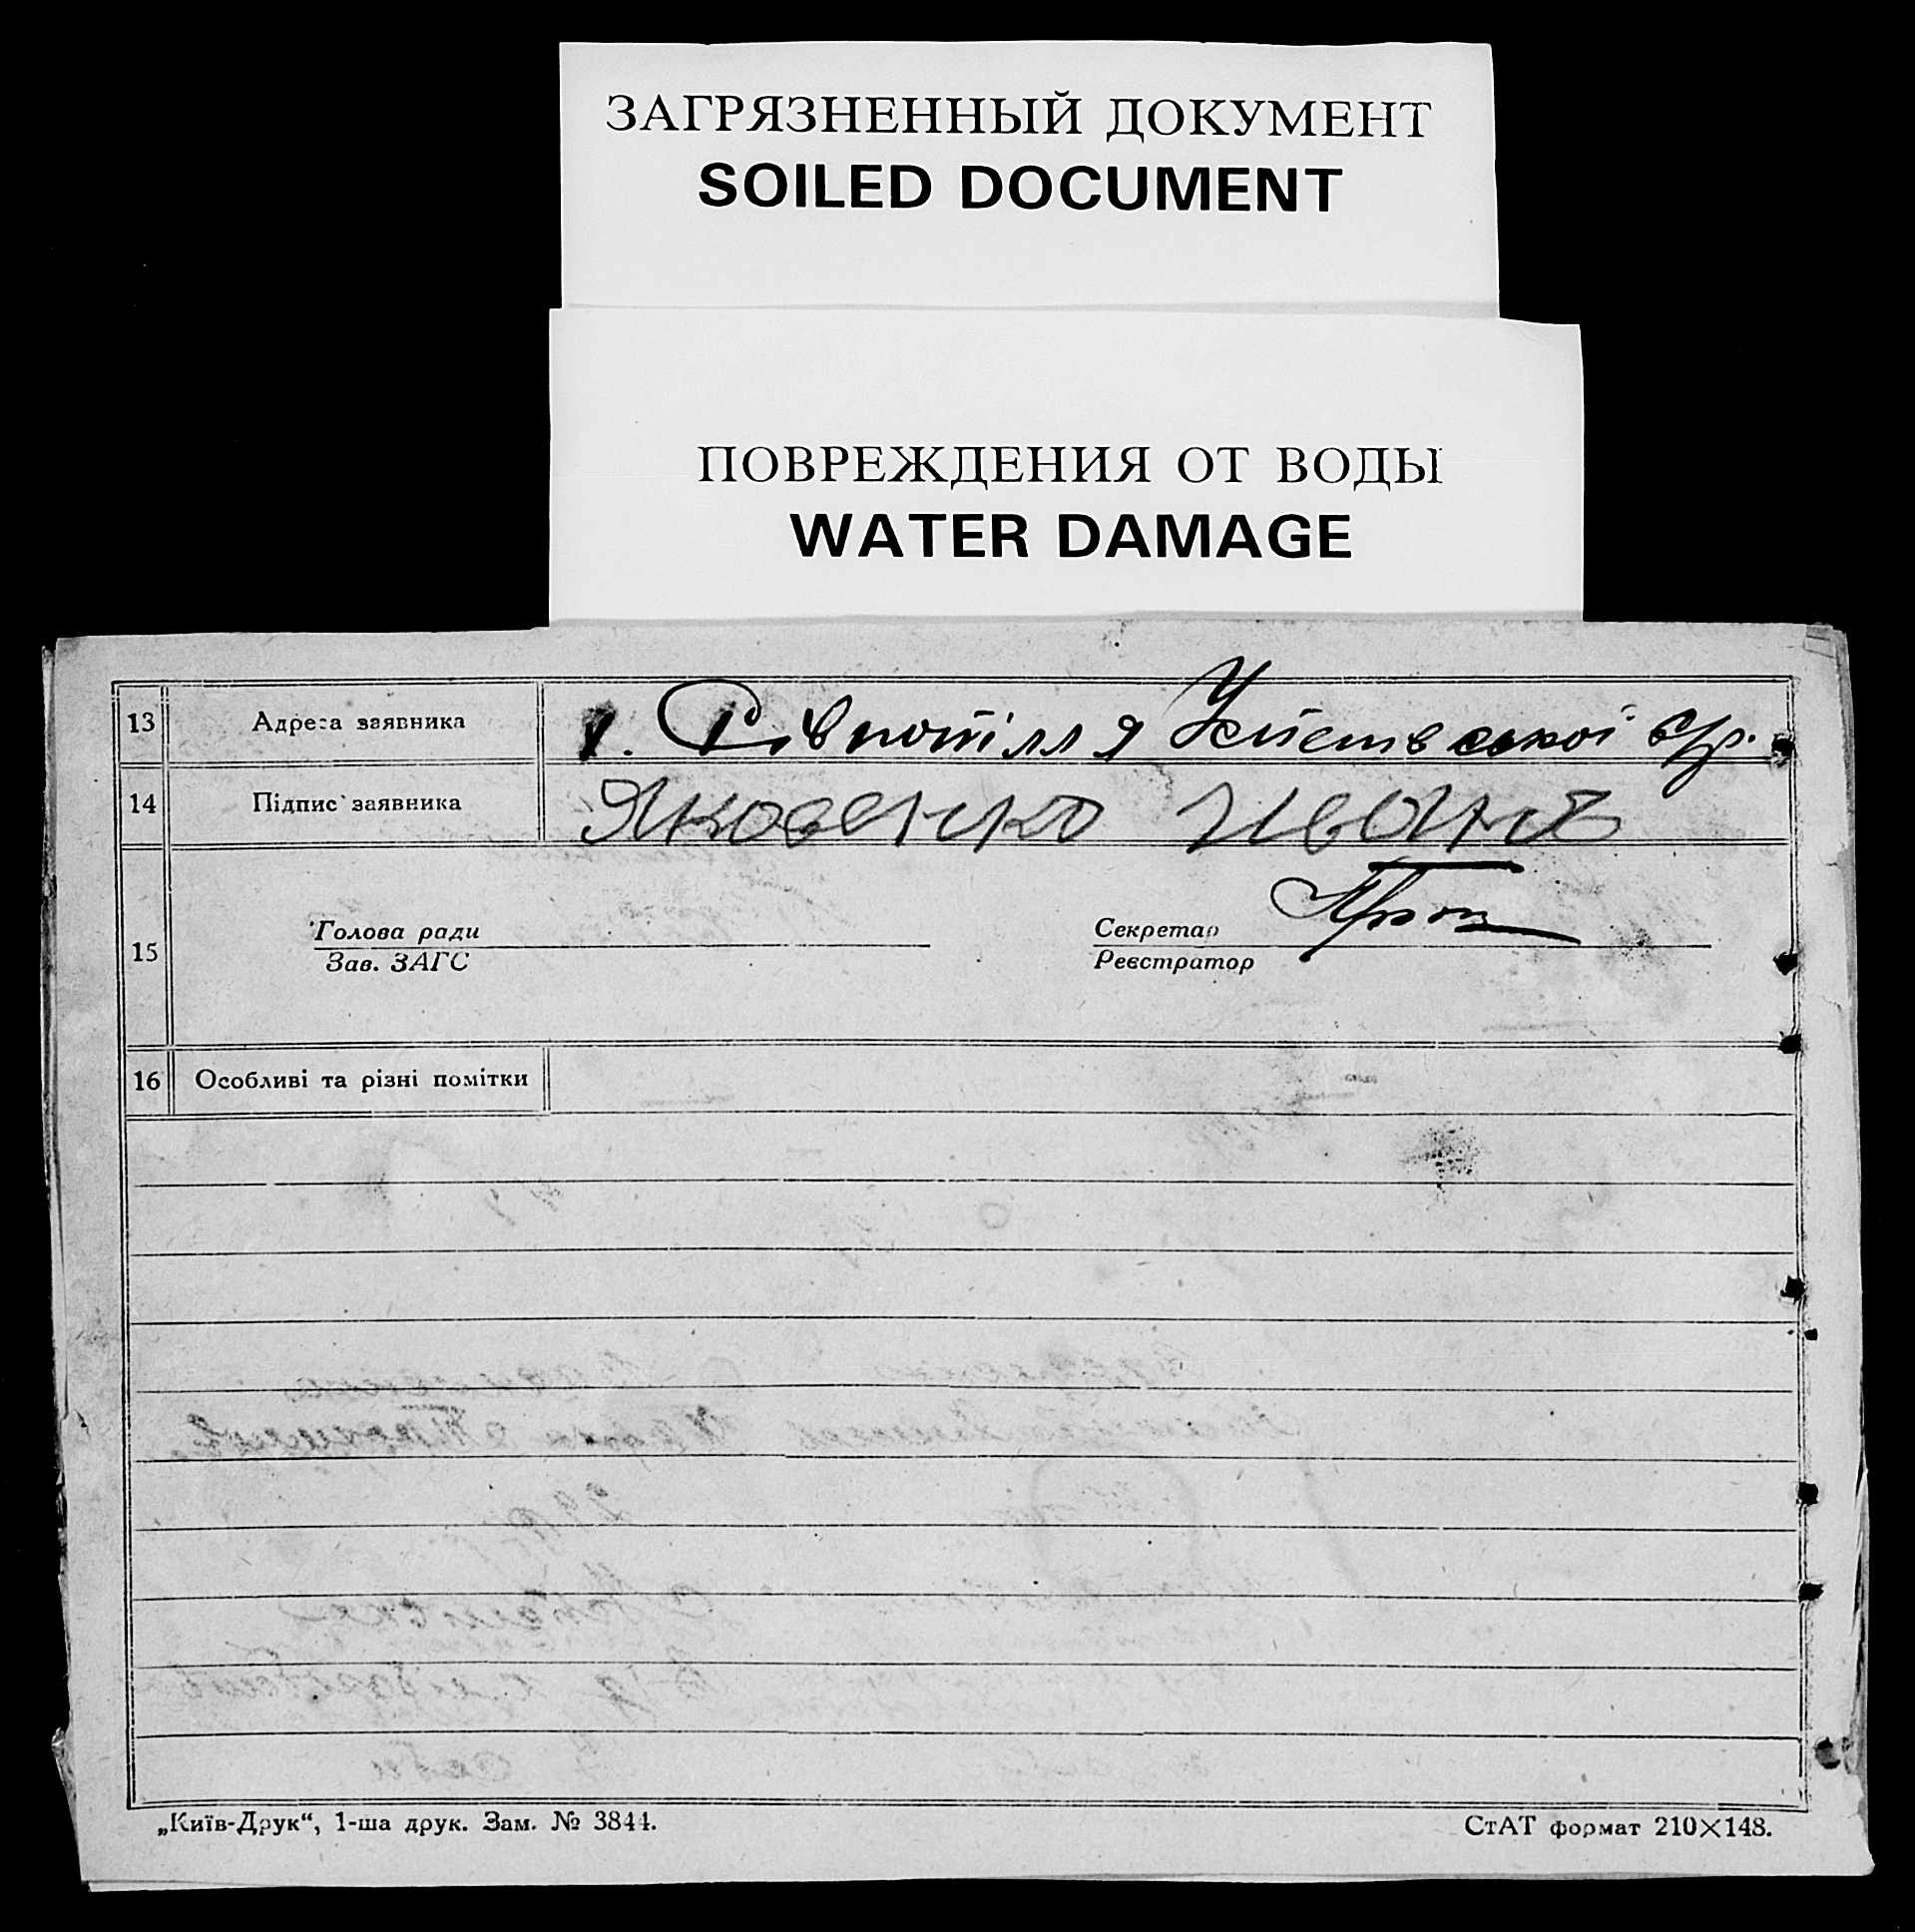 ЗАГРЯЗНЕННЫЙ ДОКУМЕНТ
SOILED DOCUMENT
ПОВРЕЖДЕНИЯ ОТ ВОДЫ
WATER DAMAGE
13 Адреса заявника Рівнопілля
14 Підпис заявника Яковенко Иван
15 Голова ради Секретар
Зав. ЗАГС Реєстратор
16 Особливі та різні помітки
„Київ-Друк“, 1-ша друк. Зам. № 3844. СтАТ формат 210×148.